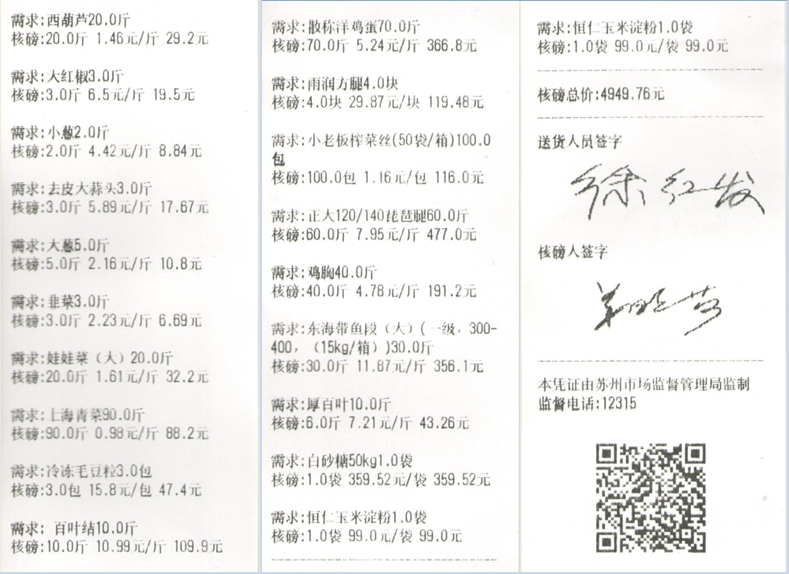 需求:西葫芦20.0斤
核磅:20.0斤 1.46元/斤 29.2元
需求:大红椒3.0斤
核磅:3.0斤 6.5元/斤 19.5元
需求:小葱2.0斤
核磅:2.0斤 4.42元/斤 8.84元
需求:去皮大蒜头3.0斤
核磅:3.0斤 5.89元/斤 17.67元
需求:大葱5.0斤
核磅:5.0斤 2.16元/斤 10.8元
需求:韭菜3.0斤
核磅:3.0斤 2.23元/斤 6.69元
需求:娃娃菜（大）20.0斤
核磅:20.0斤 1.61元/斤 32.2元
需求:上海青菜90.0斤
核磅:90.0斤 0.98元/斤 88.2元
需求:冷冻毛豆粒3.0包
核磅:3.0包 15.8元/包 47.4元
需求: 百叶结10.0斤
核磅:10.0斤 10.99元/斤 109.9元
需求:散称洋鸡蛋70.0斤
核磅:70.0斤 5.24元/斤 366.8元
需求:雨润方腿4.0块
核磅:4.0块 29.87元/块 119.48元
需求:小老板榨菜丝(50袋/箱)100.0
包
核磅:100.0包 1.16元/包 116.0元
需求:正大120/140琵琶腿60.0斤
核磅:60.0斤 7.95元/斤 477.0元
需求:鸡胸40.0斤
核磅:40.0斤 4.78元/斤 191.2元
需求:东海带鱼段（大）(一级，300-
400，（15kg/箱）)30.0斤
核磅:30.0斤 11.87元/斤 356.1元
需求:厚百叶10.0斤
核磅:6.0斤 7.21元/斤 43.26元
需求:白砂糖50kg1.0袋
核磅:1.0袋 359.52元/袋 359.52元
需求:恒仁玉米淀粉1.0袋
核磅:1.0袋 99.0元/袋 99.0元
需求:恒仁玉米淀粉1.0袋
核磅:1.0袋 99.0元/袋 99.0元
核磅总价:4949.76元
送货人员签字
徐红发
核磅人签字
本凭证由苏州市场监督管理局监制
监督电话:12315